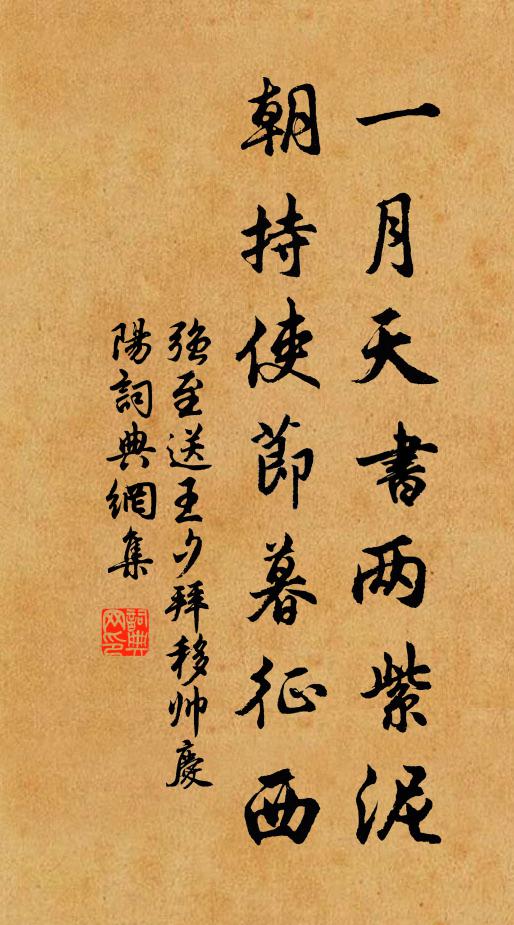 一月天书两紫泥
朝持使節暮征西
强至送王夕拜移帅慶
陽詞典網集
詞典网印